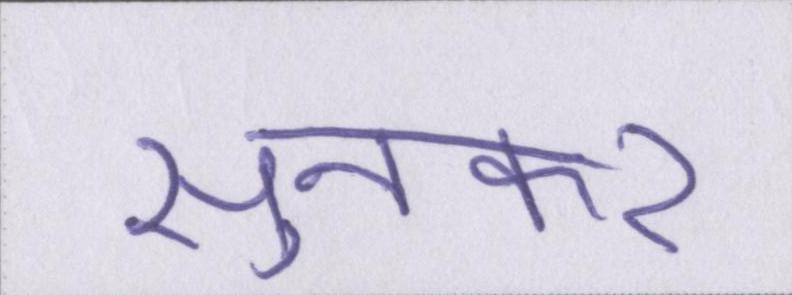 सुनकर